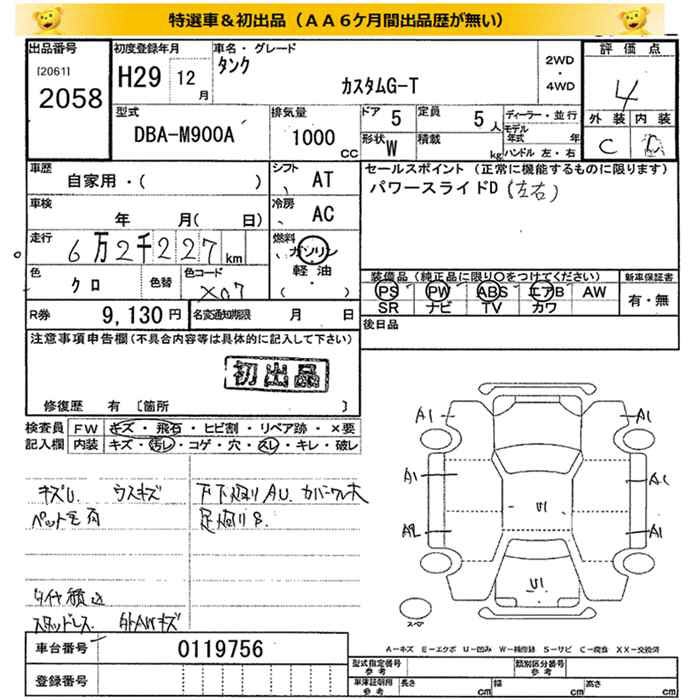 特選車＆初出品（ＡＡ６ケ月間出品歴が無い）
出品番号 初度登録年月 車名・グレード 評価点
[2061] H29 12月 タンク 2WD・4WD 4
2058 カスタムG-T
型式 排気量 ドア 5 定員 5人 ディーラー・並行 外装 内装
DBA-M900A 1000CC 形状 W 積載 kg モデル年式 年 C
ハンドル 左・右
車歴 シフト セールスポイント（正常に機能するものに限ります）
自家用・（ ） AT パワースライドD（左右）
車検 冷房
年 月（ 日） AC
走行 燃料
6万2千227km ガソリン・軽油
色 色替 色コード 装備品（純正品に限り○をつけてください） 新車保証書
クロ X07 （・ ） PS PW ABS エアB AW 有・無
SR ナビ TV カワ
R券 9,130円 名変通知期限 月 日 後日品
注意事項申告欄（不具合内容等は具体的に記入して下さい）
初出品
修復歴 有 〔箇所 〕
検査員 FW キズ・飛石・ヒビ割・リペア跡・×要
記入欄 内装 キズ・汚レ・コゲ・穴・スレ・キレ・破レ
A1 A1
A1
A2 A1
U1
U1
キズU ウスキズ
ペット毛有
タイヤ積込
スタッドレス 外AWキズ
スペア
車台番号 0119756 A－キズ E－エクボ U－凹み W－補修跡 S－サビ C－腐食 XX－交換済
登録番号 型式指定番号 参考 類別区分番号 参考
車庫証明用 参考 長さ cm 幅 cm 高さ cm